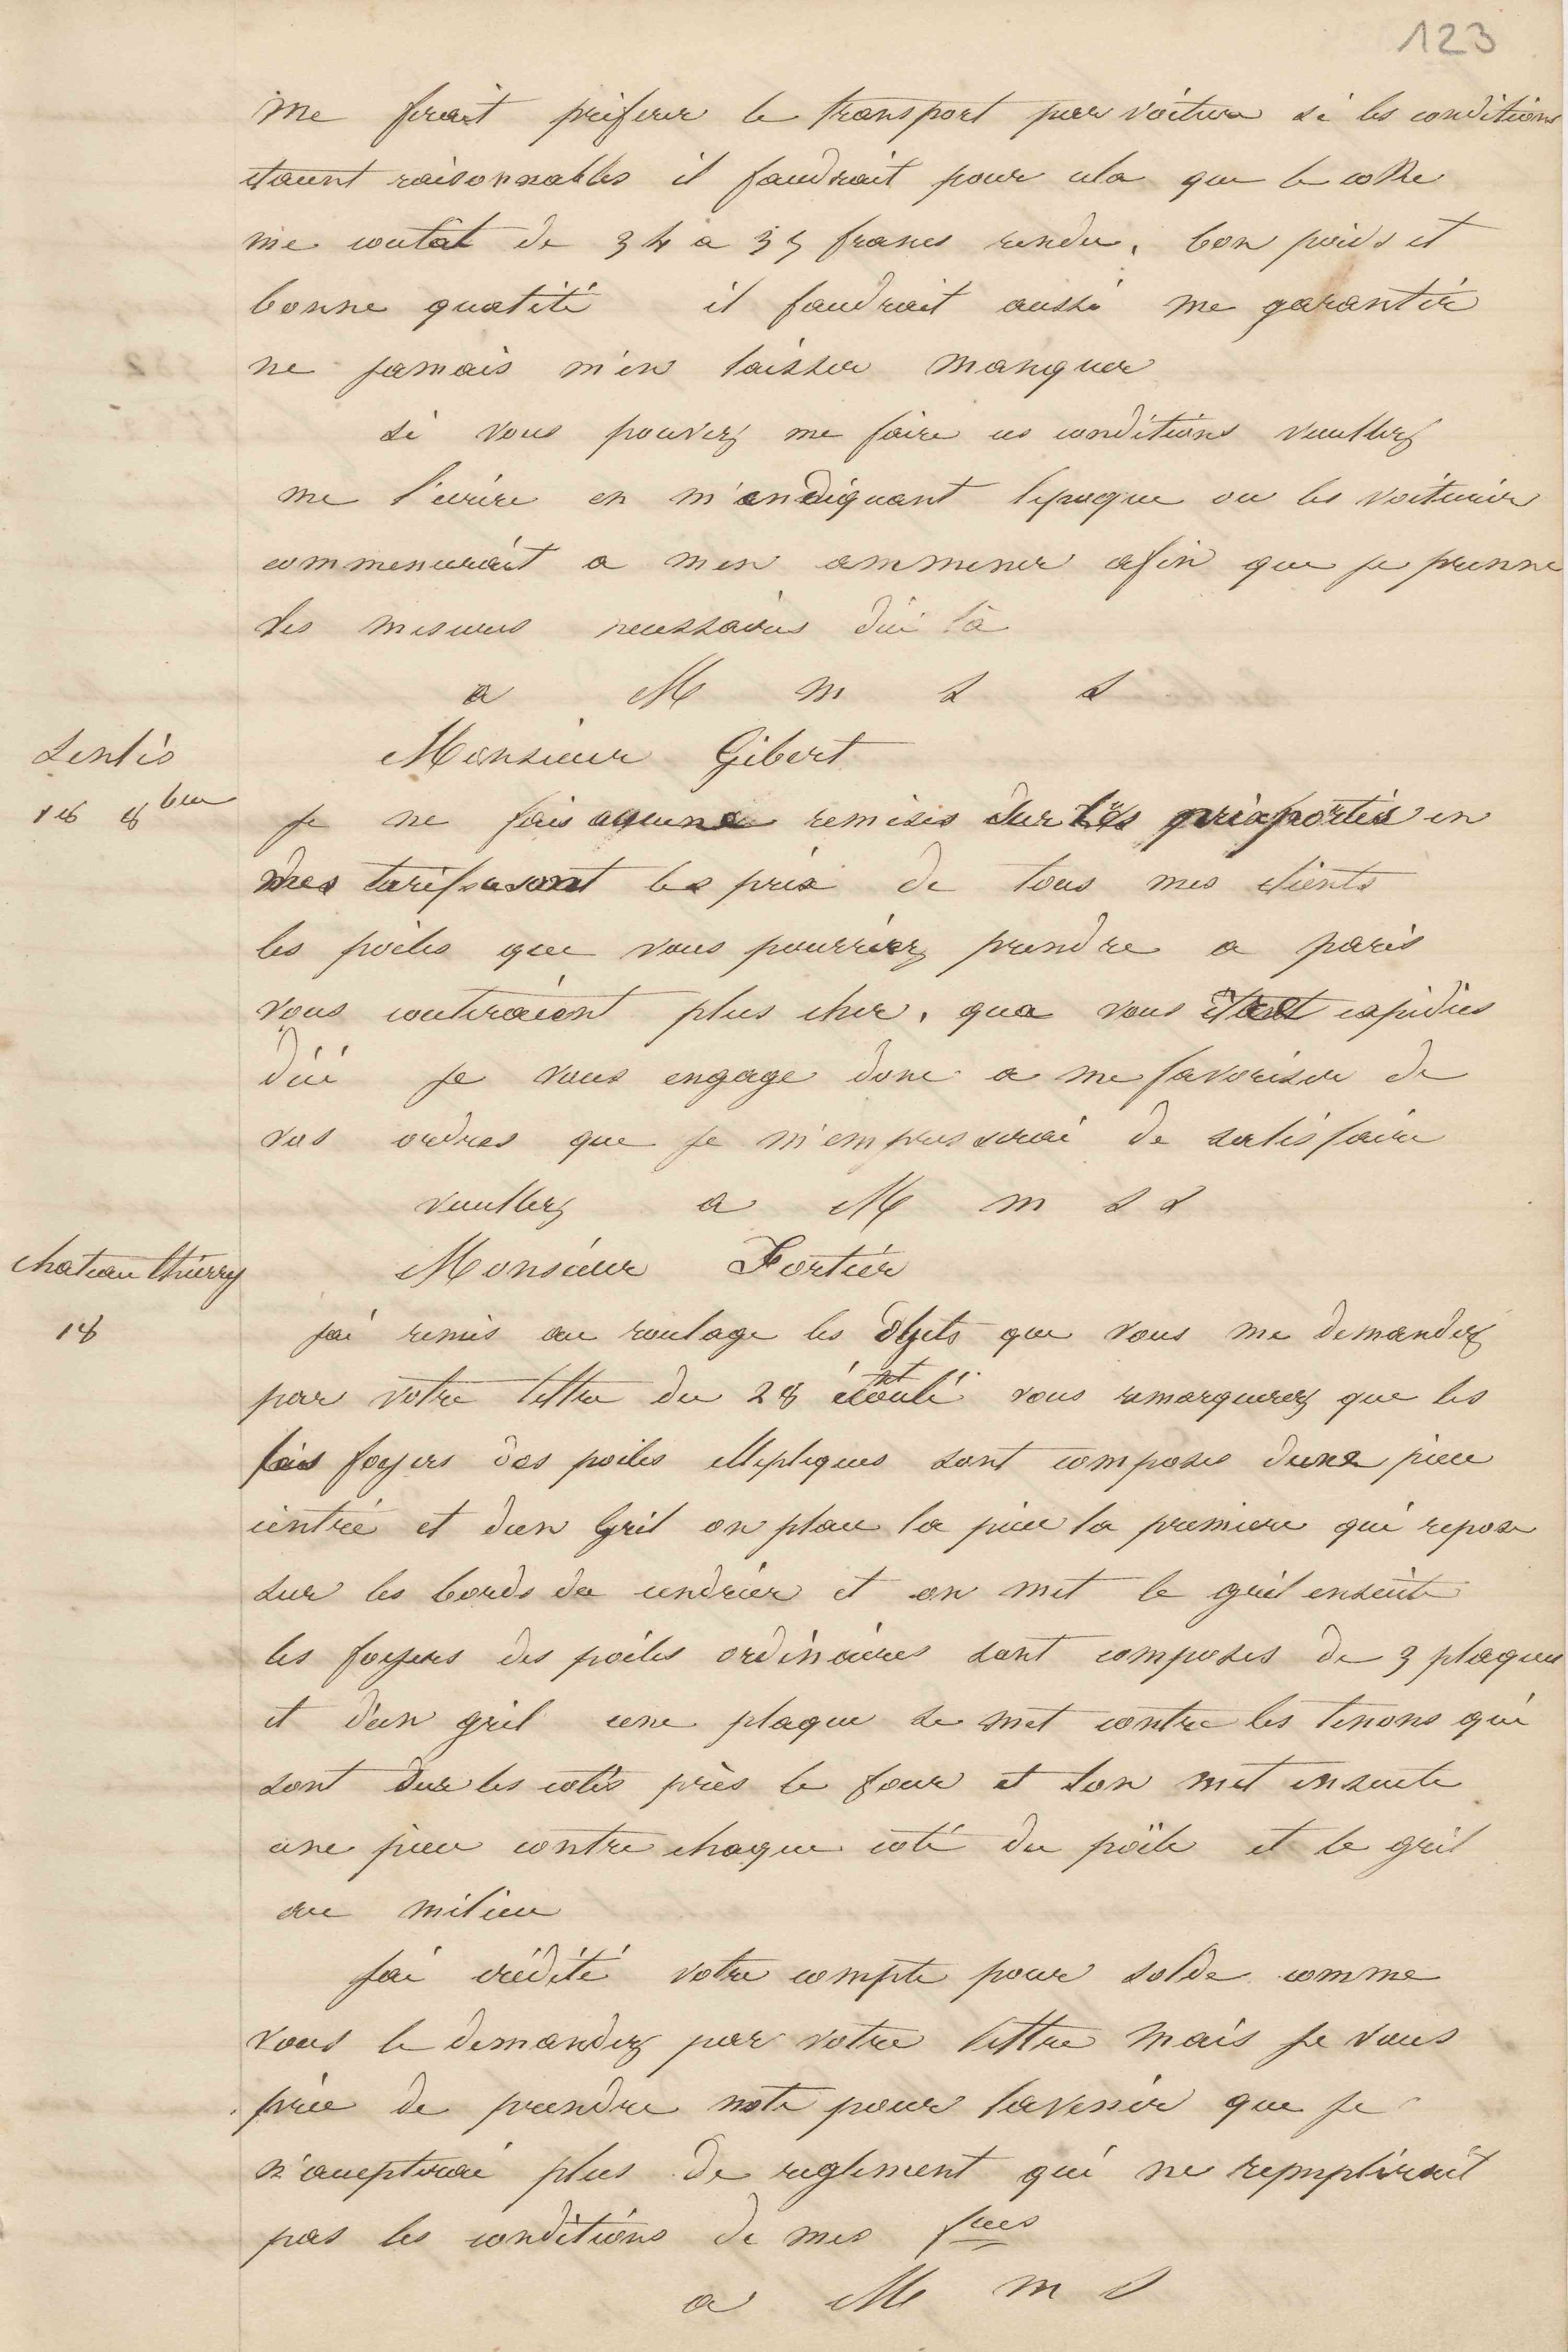 123
me ferait preferer le transport par voiture si les conditions
etaient raisonnables il faudrait pour cela que le coke
me coutat de 34 a 35 francs rendu, bon poids et
bonne qualité il faudrait aussi me garantir
ne jamais m'en laisser manquer
si vous pouvez me faire ces conditions veuillez
me l'ecrire en m'endiquant lepoque ou les voiturier
commencerait a men ammener afin que je prenne
les mesures necessaires d'ici là
a M m s s
Senlis
Monsieur Gibert
18 8bre
je ne fais aucune remises sur les prix portés en
mes tarifs ce sont les prix de tous mes clients
les poiles que vous pourriez prendre a paris
vous couteraient plus cher, qua vous etant expidies
d'ici je vous engage donc a me favoriser de
vos ordres que je m'empresserai de satisfaire
veuillez a M m s s
chateau thierry
Monsieur Fortier
18
jai remis au roulage les objets que vous me demandez
par votre lettre du 28 écoulé vous remarquerez que les
foyers des poiles elleptiques sont composes dune piece
cintrée et dun Gril on place la piece la premiere qui repose
sur les bords du cendrier et on met le gril ensuite
les foyers des poiles ordinaires sont composes de 3 plaques
et d'un gril une plaque se met contre les tenons qui
sont sur les cotés près le four et lon met ensuite
une piece contre chaque coté du poile et le gril
au milieu
jai crédité votre compte pour solde comme
vous le demandez par votre lettre mais je vous
prie de prendre note pour lavenir que je
n'accepterai plus de reglement qui ne remplirait
pas les conditions de mes fres
a M m s